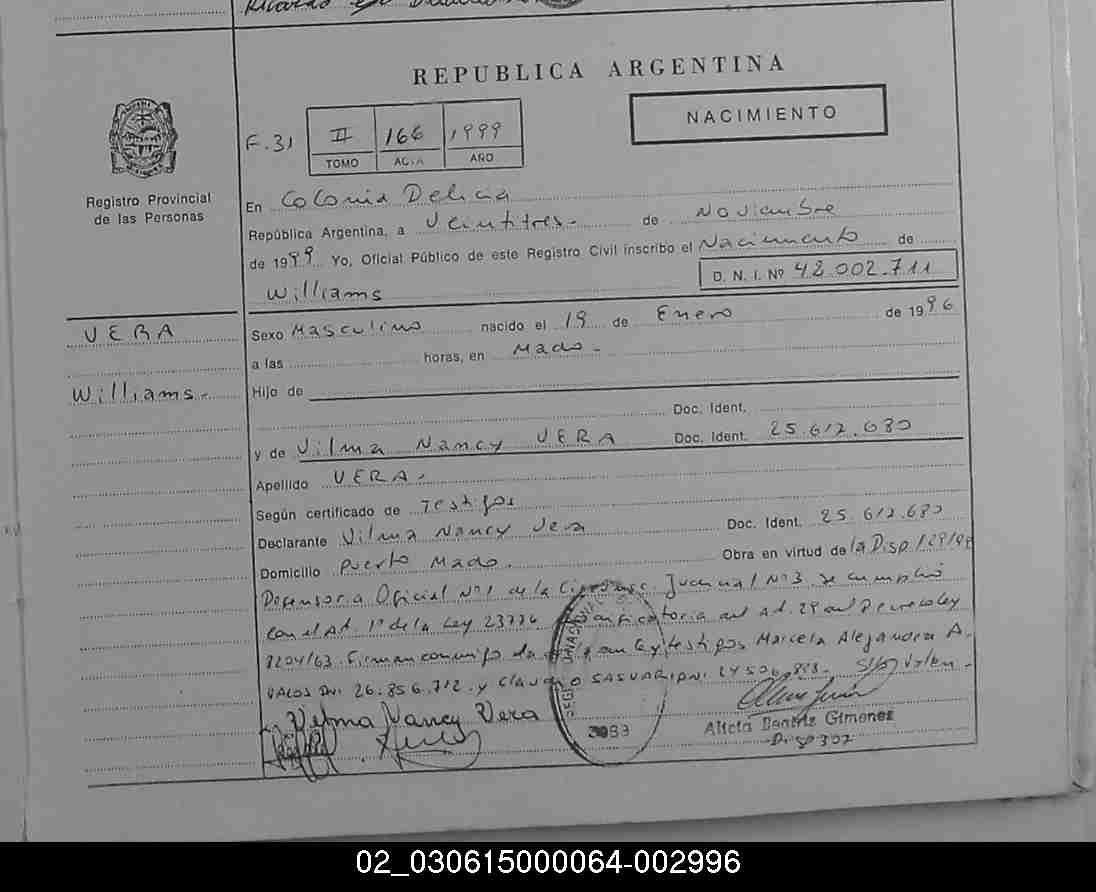 REPUBLICA ARGENTINA
NACIMIENTO
F. 31
II 166 1999
TOMO ACTA AÑO
Registro Provincial
de las Personas
En Colonia Delicia
República Argentina, a Veintitres.- de Noviembre
de 1999 Yo, Oficial Público de este Registro Civil inscribo el Nacimiento de
Williams D. N. I. Nº 42.002.711
VERA
Williams.-
Sexo Masculino nacido el 19 de Enero de 1996
a las horas, en Mado.-
Hijo de
Doc. Ident.
y de Vilma Nancy VERA Doc. Ident. 25.612.680
Apellido VERA.-
Según certificado de Testigos
Declarante Vilma Nancy Vera Doc. Ident. 25.612.680
Domicilio Puerto Mado. Obra en virtud de la Disp 129/99
Defensoria Oficial Nº 1 de la Judicial Nº 3. se cumplió
con el Art. 1º de la Ley 23776 Art. 29 del Decreto Ley
8204/63. Firman conmigo la testigos Marcela Alejandra A.
VALOS DNI 26.856.712. y Claudio SASVARI DNI. 24.506.883. S/R Valen.-
Velma Nancy Vera
2083
Alicia Beatriz Gimenez
Disp 302
02_030615000064-002996